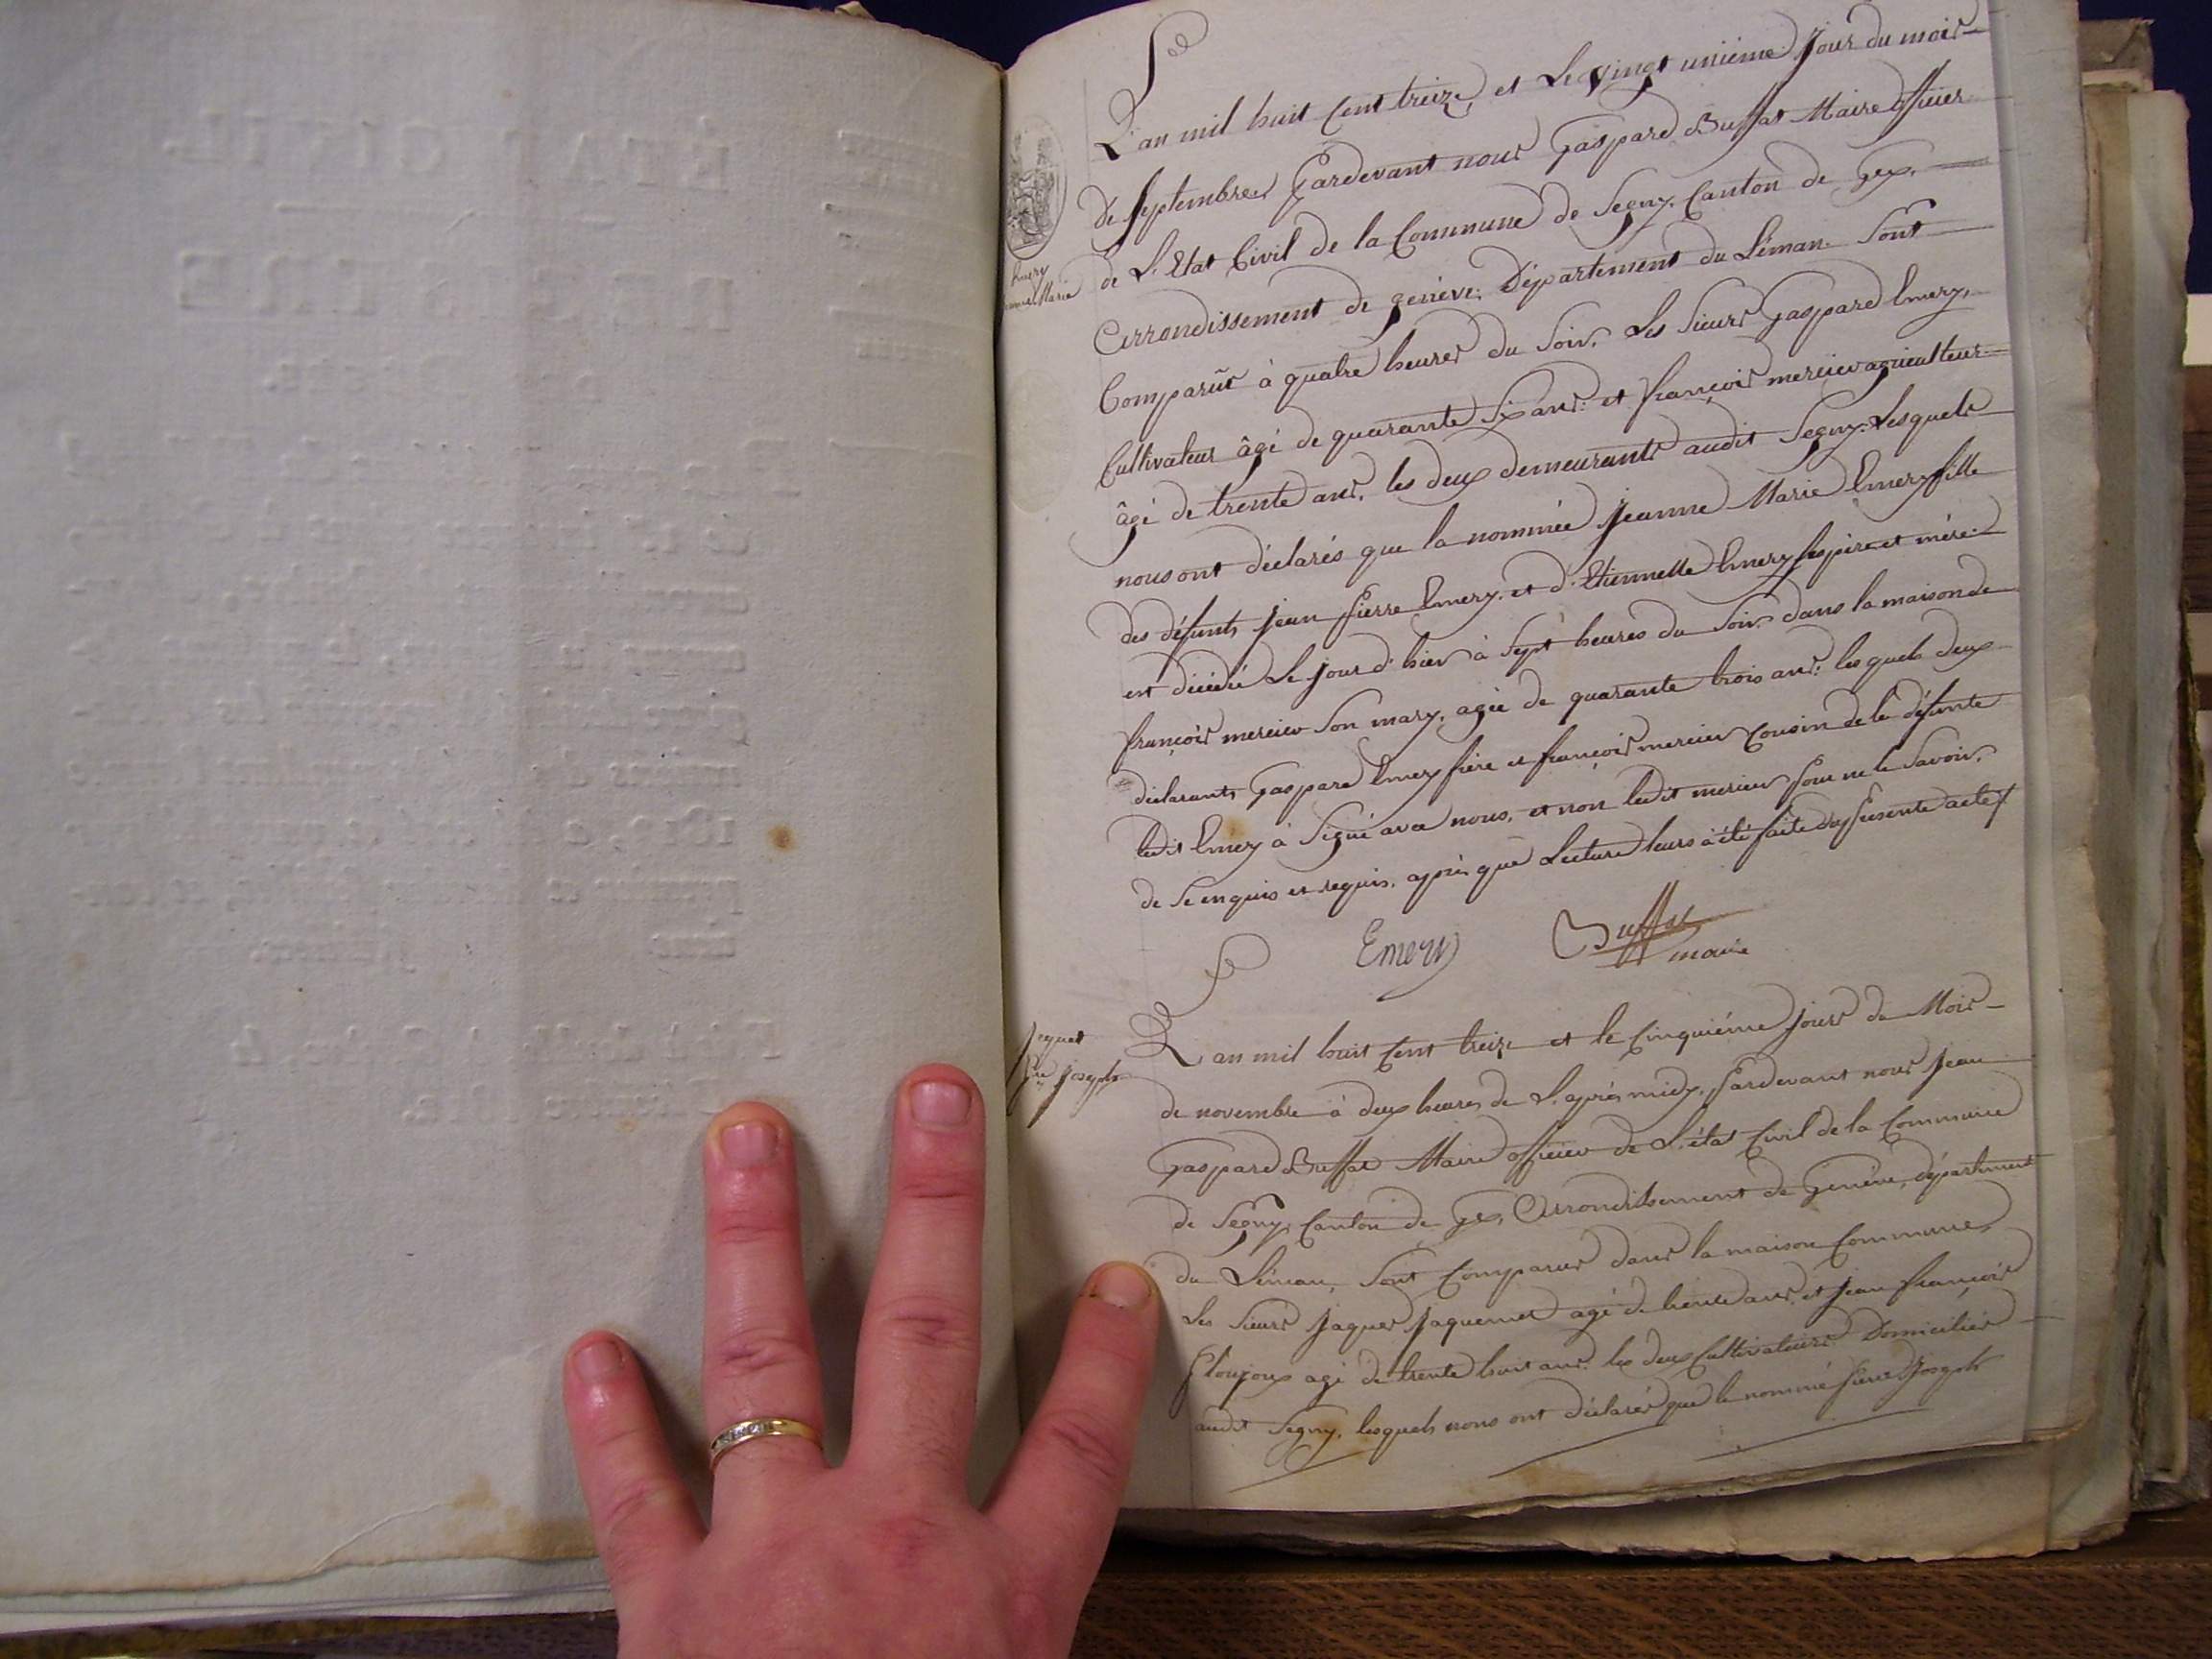 Emery
Jeanne Marie
L'an mil huit Cent treize, et Le vingt unième Jour du mois
De Septembre Pardevant nous Gaspard Buffat Maire officier
de L'Etat Civil de la Commune de Segny, Canton de Gex,
Arrondissement de genève, Département du Léman. Sont
Comparus à quatre heures du Soir, Les Sieurs Gaspard Emery,
Cultivateur âgé de quarante Six ans: et françois mercier agriculteur
âgé de trente ans, les deux demeurants audit Segny. Lesquels
nous ont déclarés que la nommée Jeanne Marie Emery fille
des défunts Jean Pierre Emery. et d'Etiennette Emery ses père et mère
est décédée Le jour d'hier à Sept heures du Soir dans la maison de
françois mercier Son mary, agée de quarante trois ans: lesquels deux
déclarants Gaspard Emery frère et françois mercier Cousin de la défunte
ledit Emery à Signé avec nous, et non ledit mercier Pour ne le Savoir,
de Se enquis et requis, après que Lecture leurs à été faite du présente acte
Emery Buffat
maire
Pre Joseph
L'an mil huit Cent treize et le Cinquième jour de Mois
de novembre à deux heures de L'après midy, Pardevant nous Jean
Gaspard Buffat Maire officier de L'état Civil de la Commune
de Segny, Canton de Gex, Arrondissement de Genève, département
du Léman, Sont Comparus dans la maison Commune,
Les Sieurs Jaques Jaquemet agé de trente ans, et Jean françois
agé de trente huit ans. les deux Cultivateurs Domiciliés
audit Segny, lesquels nous ont déclarés que le nommé Pierre Joseph